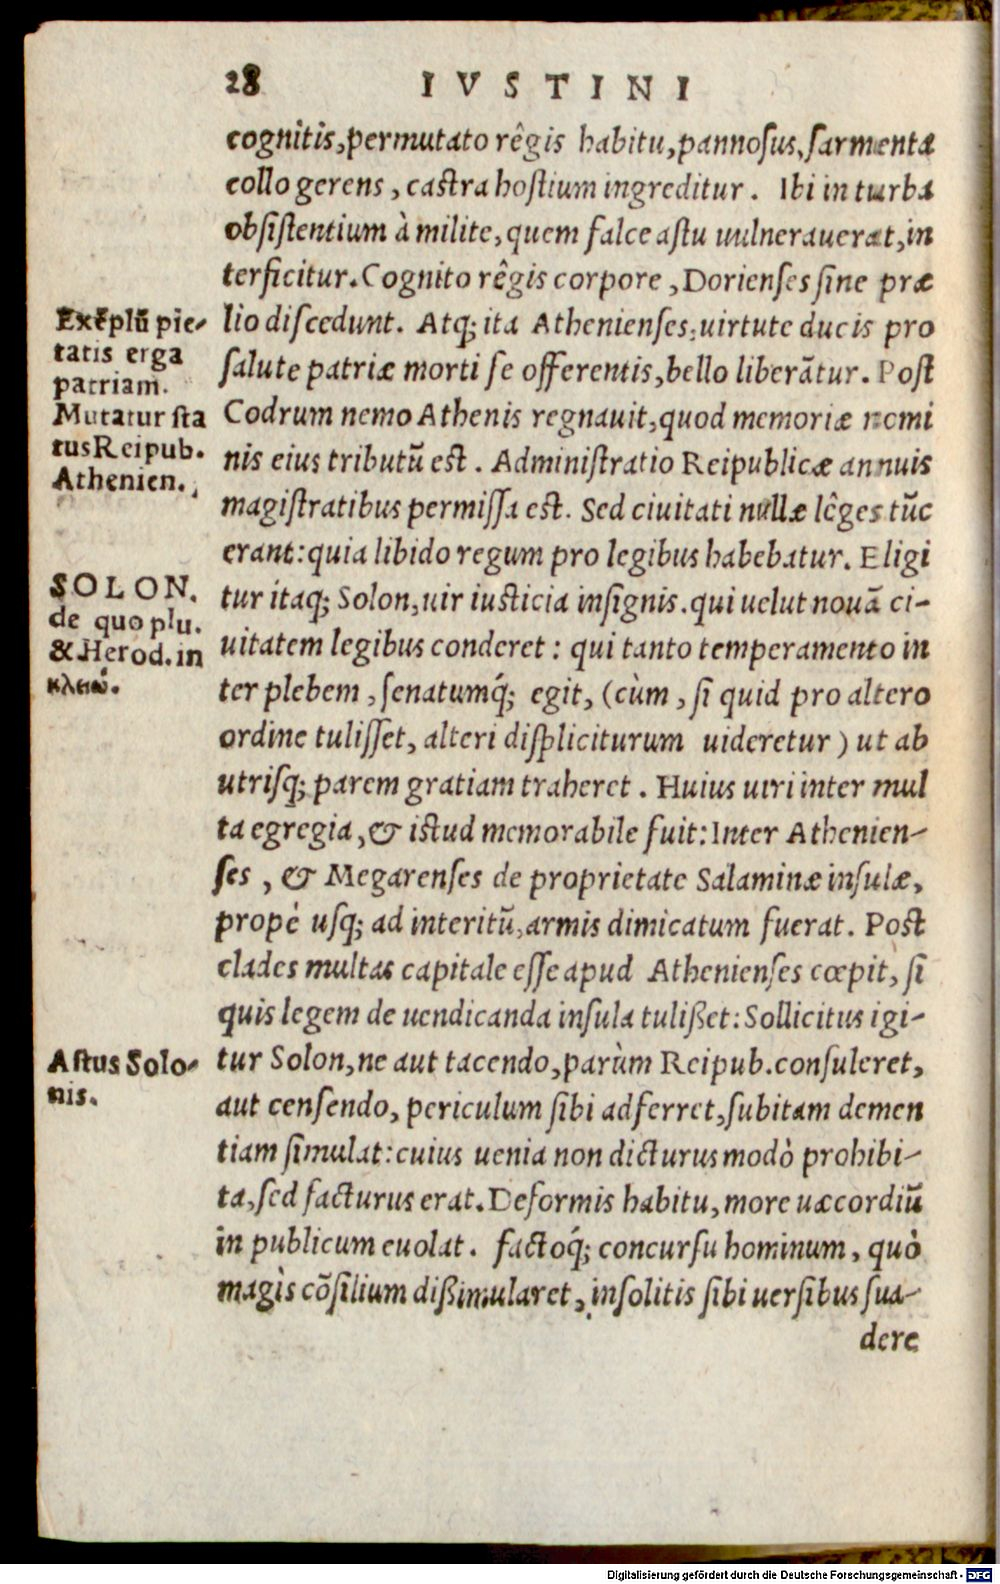 28 IVSTINI
cognitis, permutato rêgis habitu, pannosus, sarmenta
collo gerens, castra hostium ingreditur. Ibi in turba
obsistentium à milite, quem falce astu uulnerauerat, in
terficitur. Cognito rêgis corpore, Dorienses sine præ
lio discedunt. Atq; ita Athenienses, uirtute ducis pro
salute patriæ morti se offerentis, bello liberãtur. Post
Codrum nemo Athenis regnauit, quod memoriæ nomi
nis eius tributũ est. Administratio Reipublicæ annuis
magistratibus permissa est. Sed ciuitati nullæ lêges tũc
erant: quia libido regum pro legibus habebatur. Eligi
tur itaq; Solon, uir iusticia insignis. qui uelut nouã ci-
uitatem legibus conderet: qui tanto temperamento in
ter plebem, senatumq́; egit, (cùm, si quid pro altero
ordine tulisset, alteri displiciturum uideretur) ut ab
utrisq; parem gratiam traheret. Huius uiri inter mul
ta egregia, & istud memorabile fuit: Inter Athenien-
ses, & Megarenses de proprietate Salaminæ insulæ,
propè usq; ad interitũ, armis dimicatum fuerat. Post
clades multas capitale esse apud Athenienses cœpit, si
quis legem de uendicanda insula tulißet: Sollicitus igi-
tur Solon, ne aut tacendo, parùm Reipub. consuleret,
aut censendo, periculum sibi adferret, subitam demen
tiam simulat: cuius uenia non dicturus modò prohibi-
ta, sed facturus erat. Deformis habitu, more uæcordiũ
in publicum euolat. factoq́; concursu hominum, quò
magìs cõsilium dißimularet, insolitis sibi uersibus sua-
dere
Exẽplũ pie-
tatis erga
patriam.
Mutatur sta
tus Reipub.
Athenien.
SOLON.
de quo plu.
& Herod. in
κλειώ.
Astus Solo-
nis.
Digitalisierung gefördert durch die Deutsche Forschungsgemeinschaft - DFG